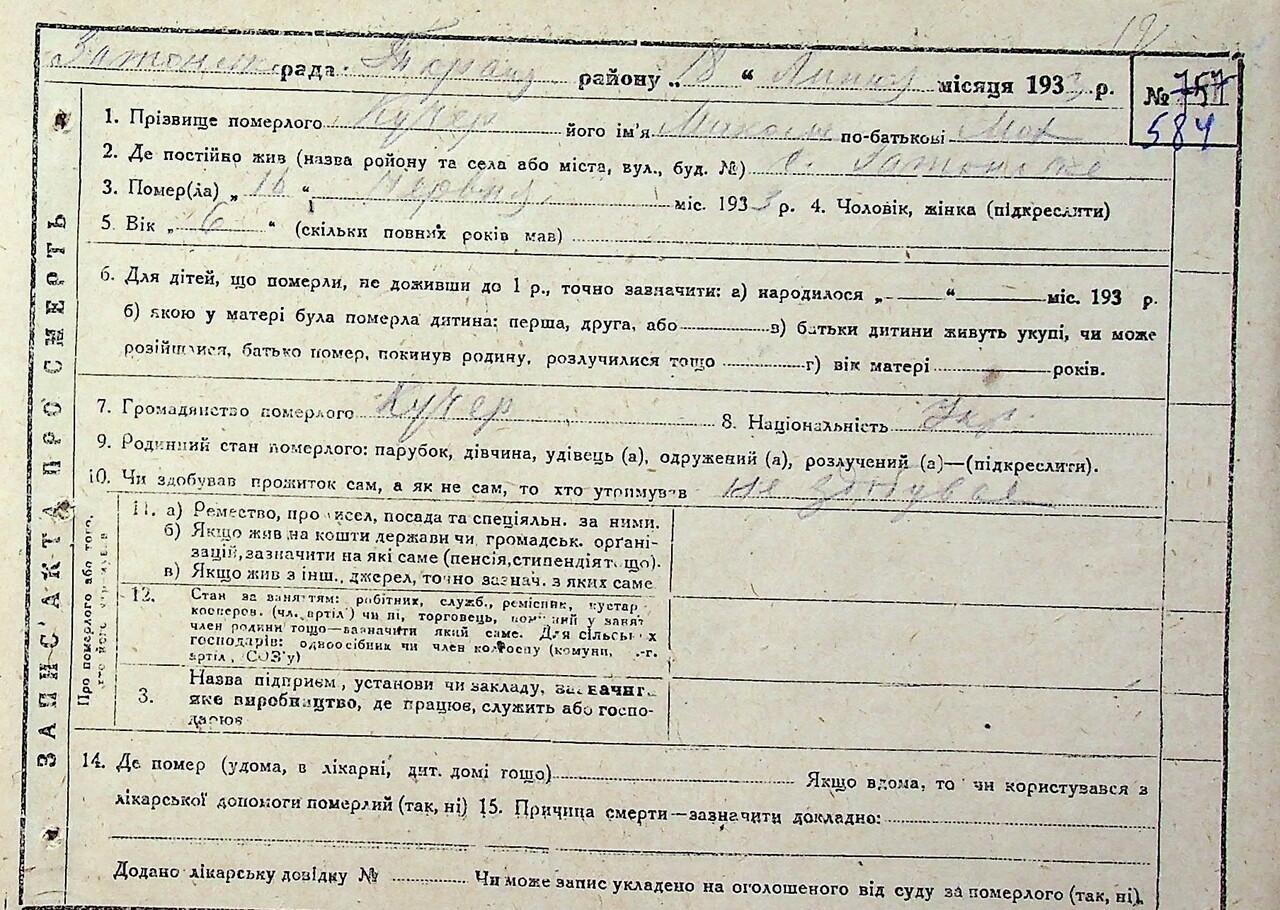 рада район у „ 18 “ Липня місяця 1933 р.
№ 757
584
1. Прізвище померлого Кучер його ім'я по-батькові
2. Де постійно жив (назва ройону та села або міста, вул., буд. №) с.
3. Помер(ла) „ 16 “ Червня міс. 1933 р. 4. Чоловік, жінка (підкреслити)
5. Вік „ 6 “ (скільки повних років мав)
6. Для дітей, що померли, не доживши до 1 р., точно зазначити: а) народилося „ — “ — міс. 193 р.
б) якою у матері була померла дитина: перша, друга, або — в) батьки дитини живуть укупі, чи може
розійшлися, батько помер, покинув родину, розлучилися тощо — г) вік матері — років.
7. Громадянство померлого Кучер 8. Національність Укр.
9. Родинний стан померлого: парубок, дівчина, удівець (а), одружений (а), розлучений (а)—(підкреслити).
10. Чи здобував прожиток сам, а як не сам, то хто утримував не здобував
ЗАПИС АКТА ПРО СМЕРТЬ
Про померлого або того,
хто його утримував
11. а) Ремество, промисел, посада та спеціяльн. за ними.
б) Якщо жив на кошти держави чи громадськ. орґані-
зацій, зазначити на які саме (пенсія, стипендія т. що).
в) Якщо жив з інш. джерел, точно зазнач. з яких саме
12. Стан за заняттям: робітник, служб., ремісник, кустар
косперов. (чл. артіл.) чи ні, торговець, у занят
член родини тощо—зазначити який саме. Для сільськ х
господарів: одноосібник чи член колгоспу (комуни, -г.
артіл, СОЗ'у)
3. Назва підприєм, установи чи закладу, зазначит
яке виробництво, де працює, служить або госпо-
дарює
14. Де помер (удома, в лікарні, дит. домі тощо) Якщо вдома, то чи користувався з
лікарської допомоги померлий (так, ні) 15. Причина смерти—зазначити докладно:
Додано лікарську довідку № Чи може запис укладено на оголошеного від суду за померлого (так, ні).